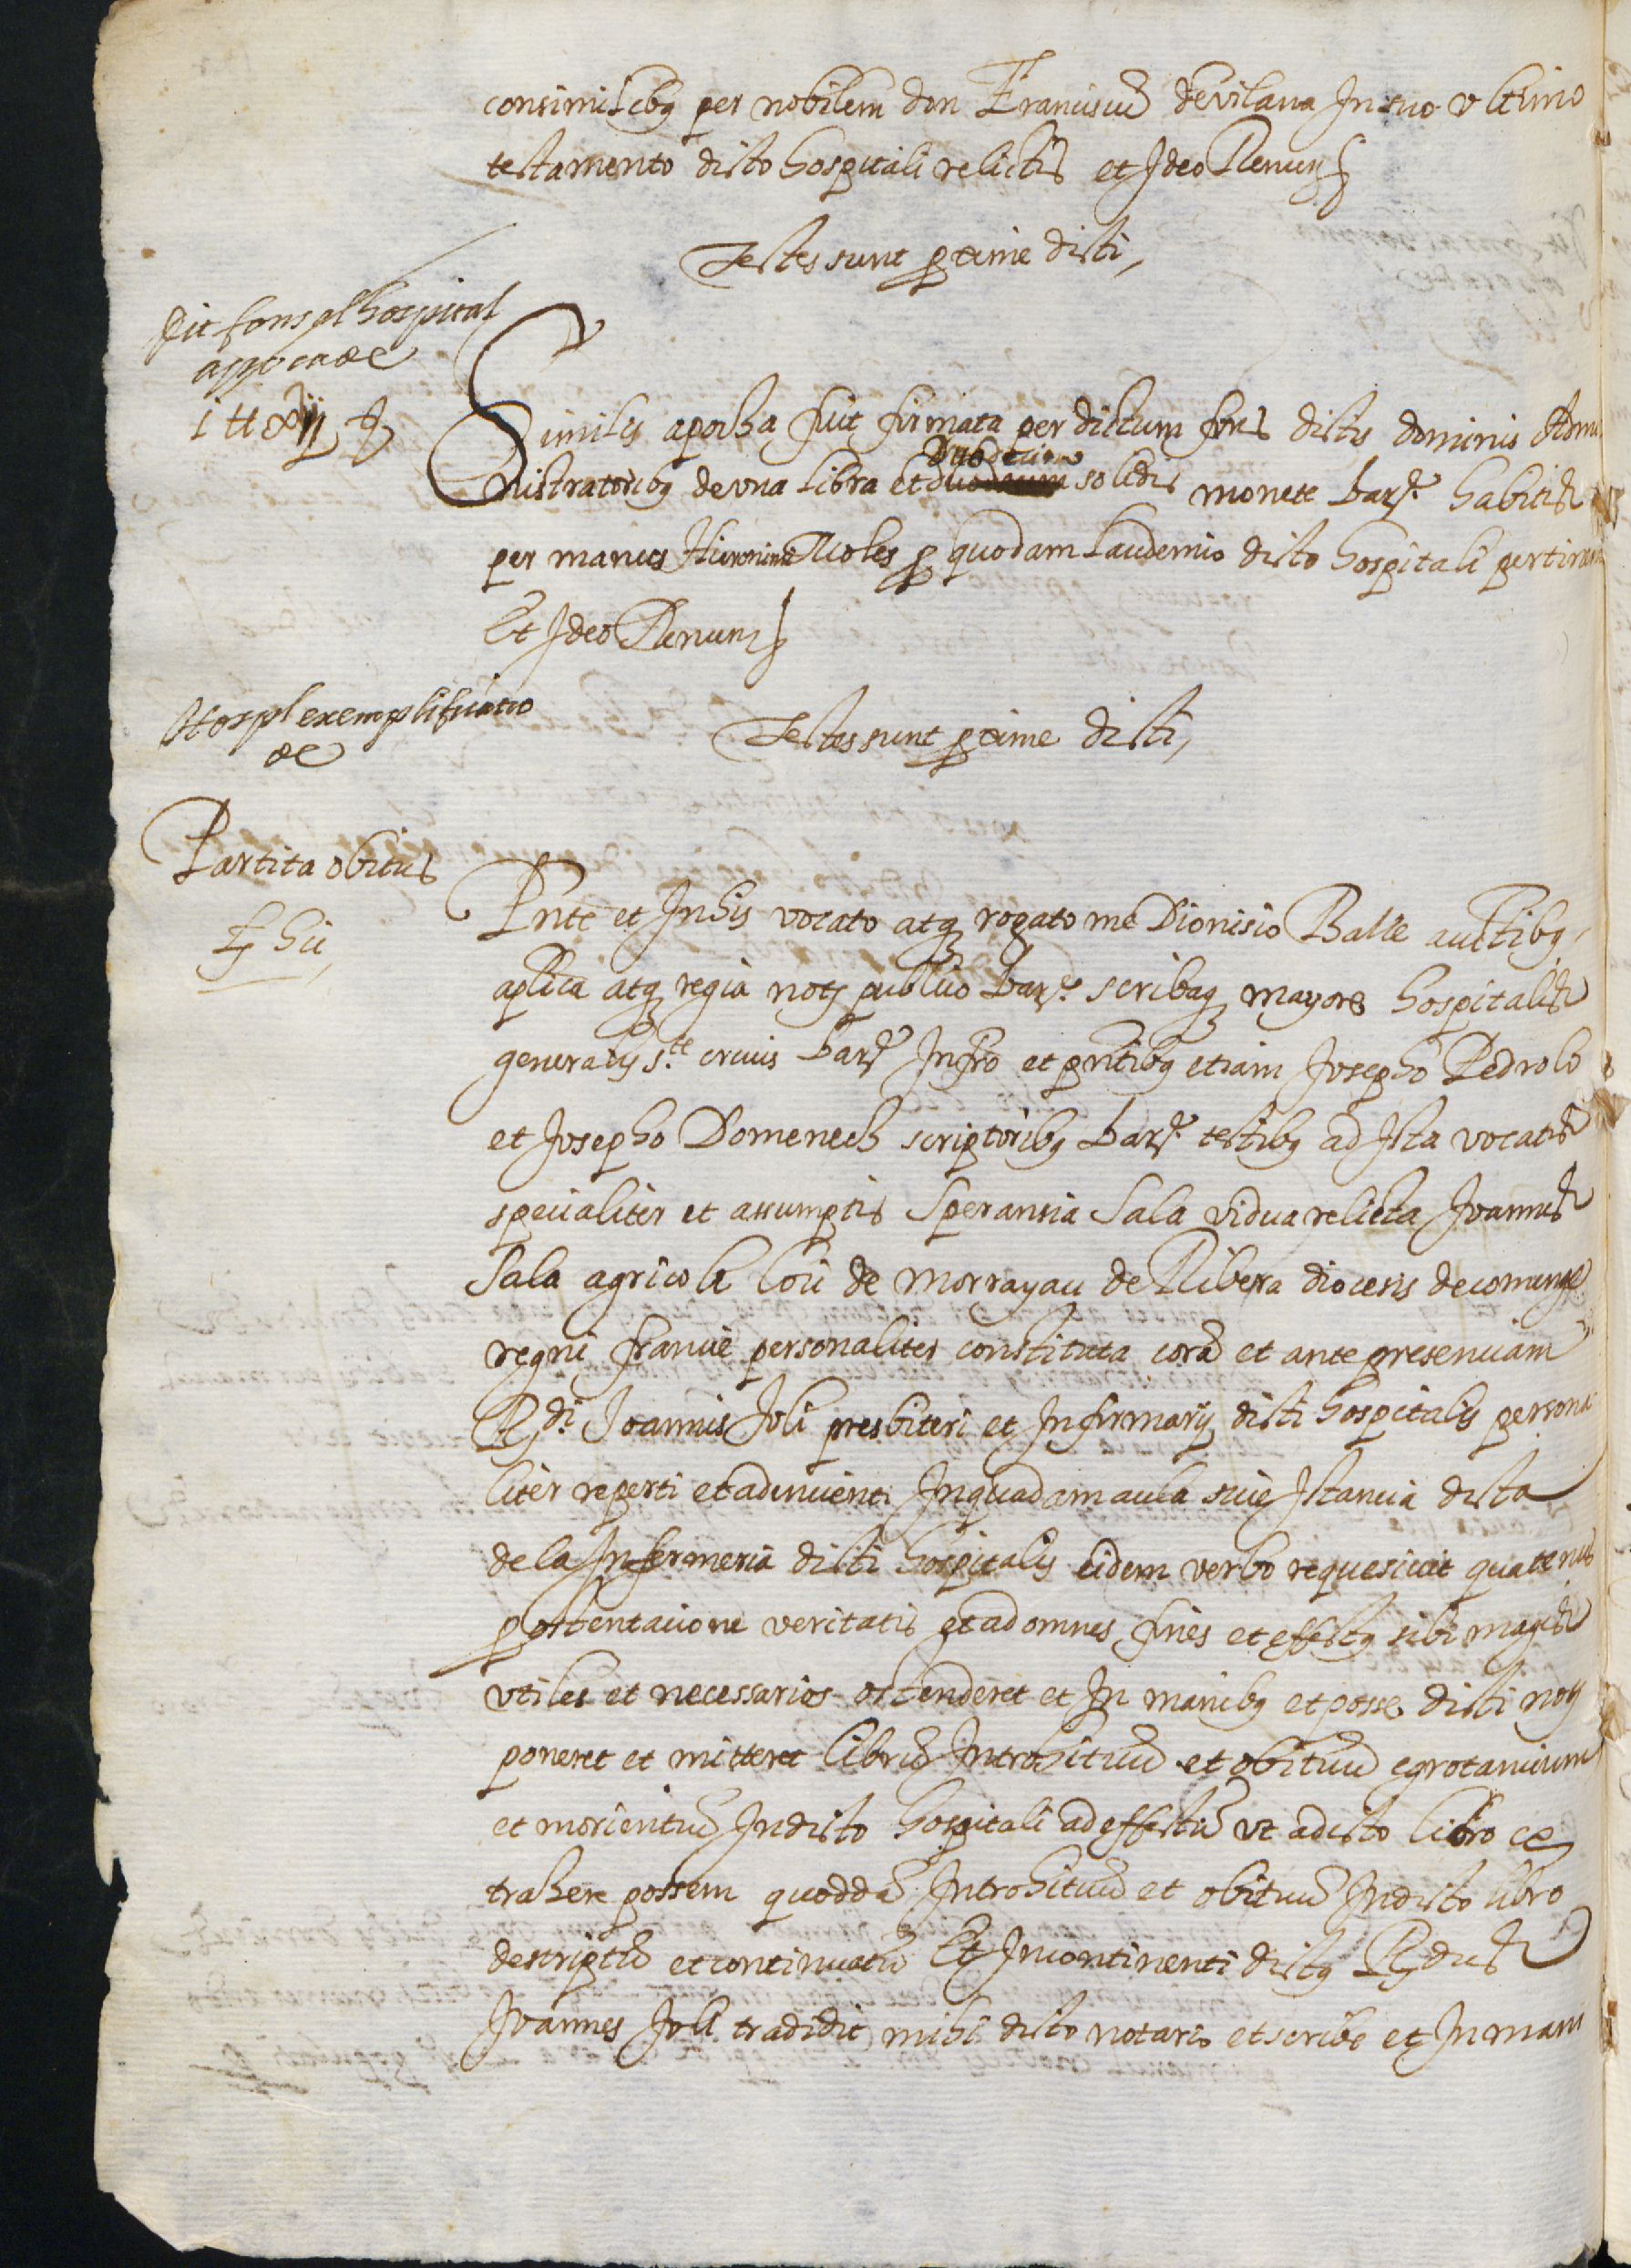 consimilibq per nobilem don Franciscũ devilana In suo ultimo
testamento dicto hospitali relictis et Ideo Renun
Testes sunt proxime dicti,
Dit fons pl hospital
appoca de
Similis apocha fuit firmata per dictum fons dictis dominis Admi
nistratoribq de una libra et duodecim solidis monete barne habitis
per manus Hieronimi Moles p quodam laudemio dicto hospitali pertinen
Et Ideo Renun
Testes sunt proxime dicti,
Hospl exemplificatio
de
Partita obitus
hic
Pnte et In his vocato atq rogato me Dionisio Balle auctibq
aplica atq regia noty publico barne scribaq mayore hospitalis
generalis s.te crucis barne Infro et pntibq etiam Josepho Pedrolo
et Josepho Domenech scriptoribq barne testibq ad Ista vocatis
specialiter et assumptis Speransia Sala vidua relicta Joannis
Sala agricole loci de morrayau de Ribera diocesis de comenge
regni francie personaliter constituta corã et ante presenciam
Rdi. Joannis Joli presbiteri et Infirmarij dicti hospitalis persona
liter reperti et adinventi In quadam aula sive Istancia dicta
de la Infermeria dicti hospitalis eidem verbo requesivit quatenus
p ostentacione veritatis et ad omnes fines et effectq sibi magis
utiles et necessarios ostenderet et In manibq et posse dicti noty
poneret et mitteret librũ Introhituũ et obituũ egrotancium
et morientiũ In dicto hospitali ad effectũ ut a dicto libro ex
trahere possem quoddã Introhituũ et obituũ In dicto libro
descriptũ et continuatũ Et Incontinenti dictq Rdus
Joannes Joli tradidit mihi dicto notario et scribe et In man